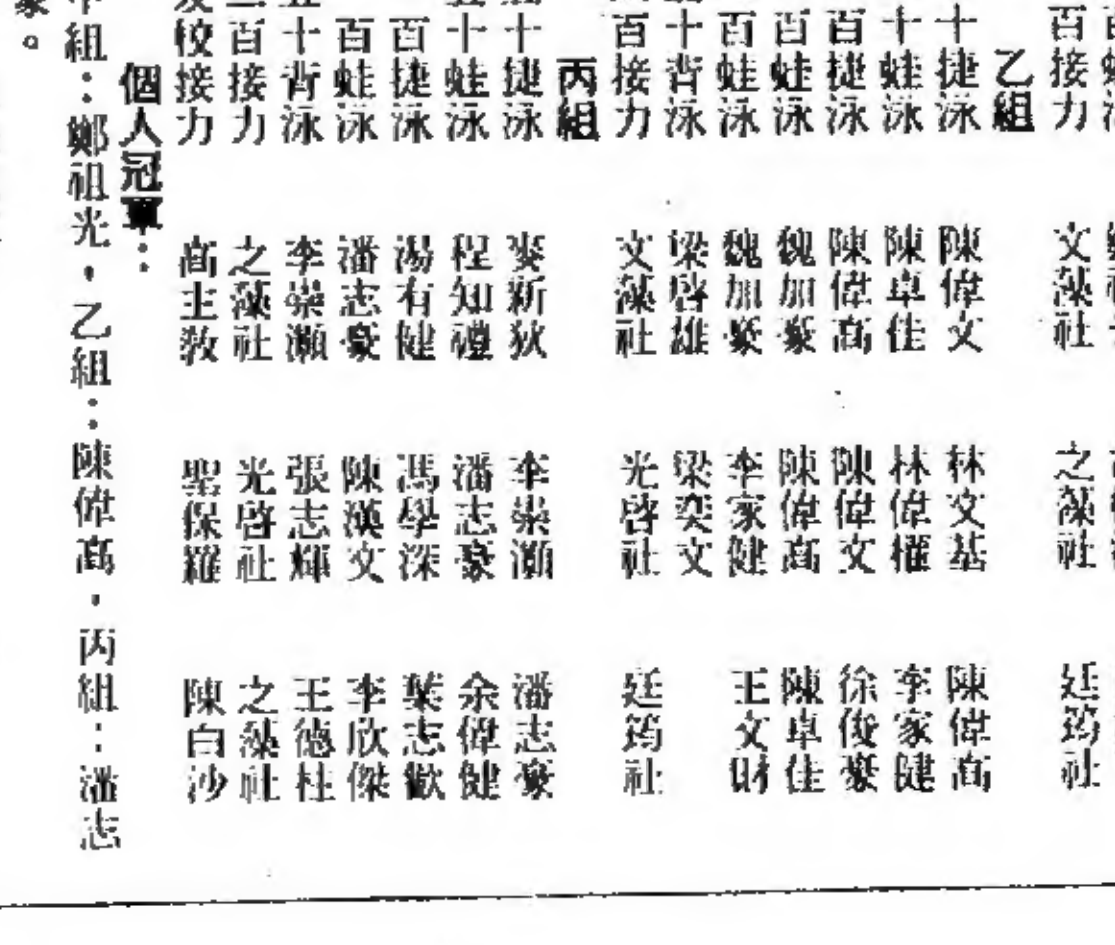 百接力 文藻社 之藻社 廷筠社
乙組
十捷泳 陳偉文 林文基 陳偉高
十蛙泳 陳卓佳 林偉權 李家健
百捷泳 陳偉高 陳偉文 徐俊豪
百蛙泳 魏加豪 陳偉高 陳卓佳
百蛙泳 魏加豪 李家健 王文財
十背泳 梁啓雄 梁奕文
百接力 文藻社 光啓社 廷筠社
丙組
十捷泳 麥新狄 李崇灝 潘志豪
十蛙泳 程知禮 潘志豪 余偉健
百捷泳 湯有健 馮學深 葉志歡
百蛙泳 潘志豪 陳漢文 李欣傑
五十背泳 李崇灝 張志輝 王德柱
百接力 之藻社 光啓社 之藻社
校接力 高主教 聖保羅 陳白沙
個人冠軍：
組：鄭祖光，乙組：陳偉高，丙組：潘志
豪。